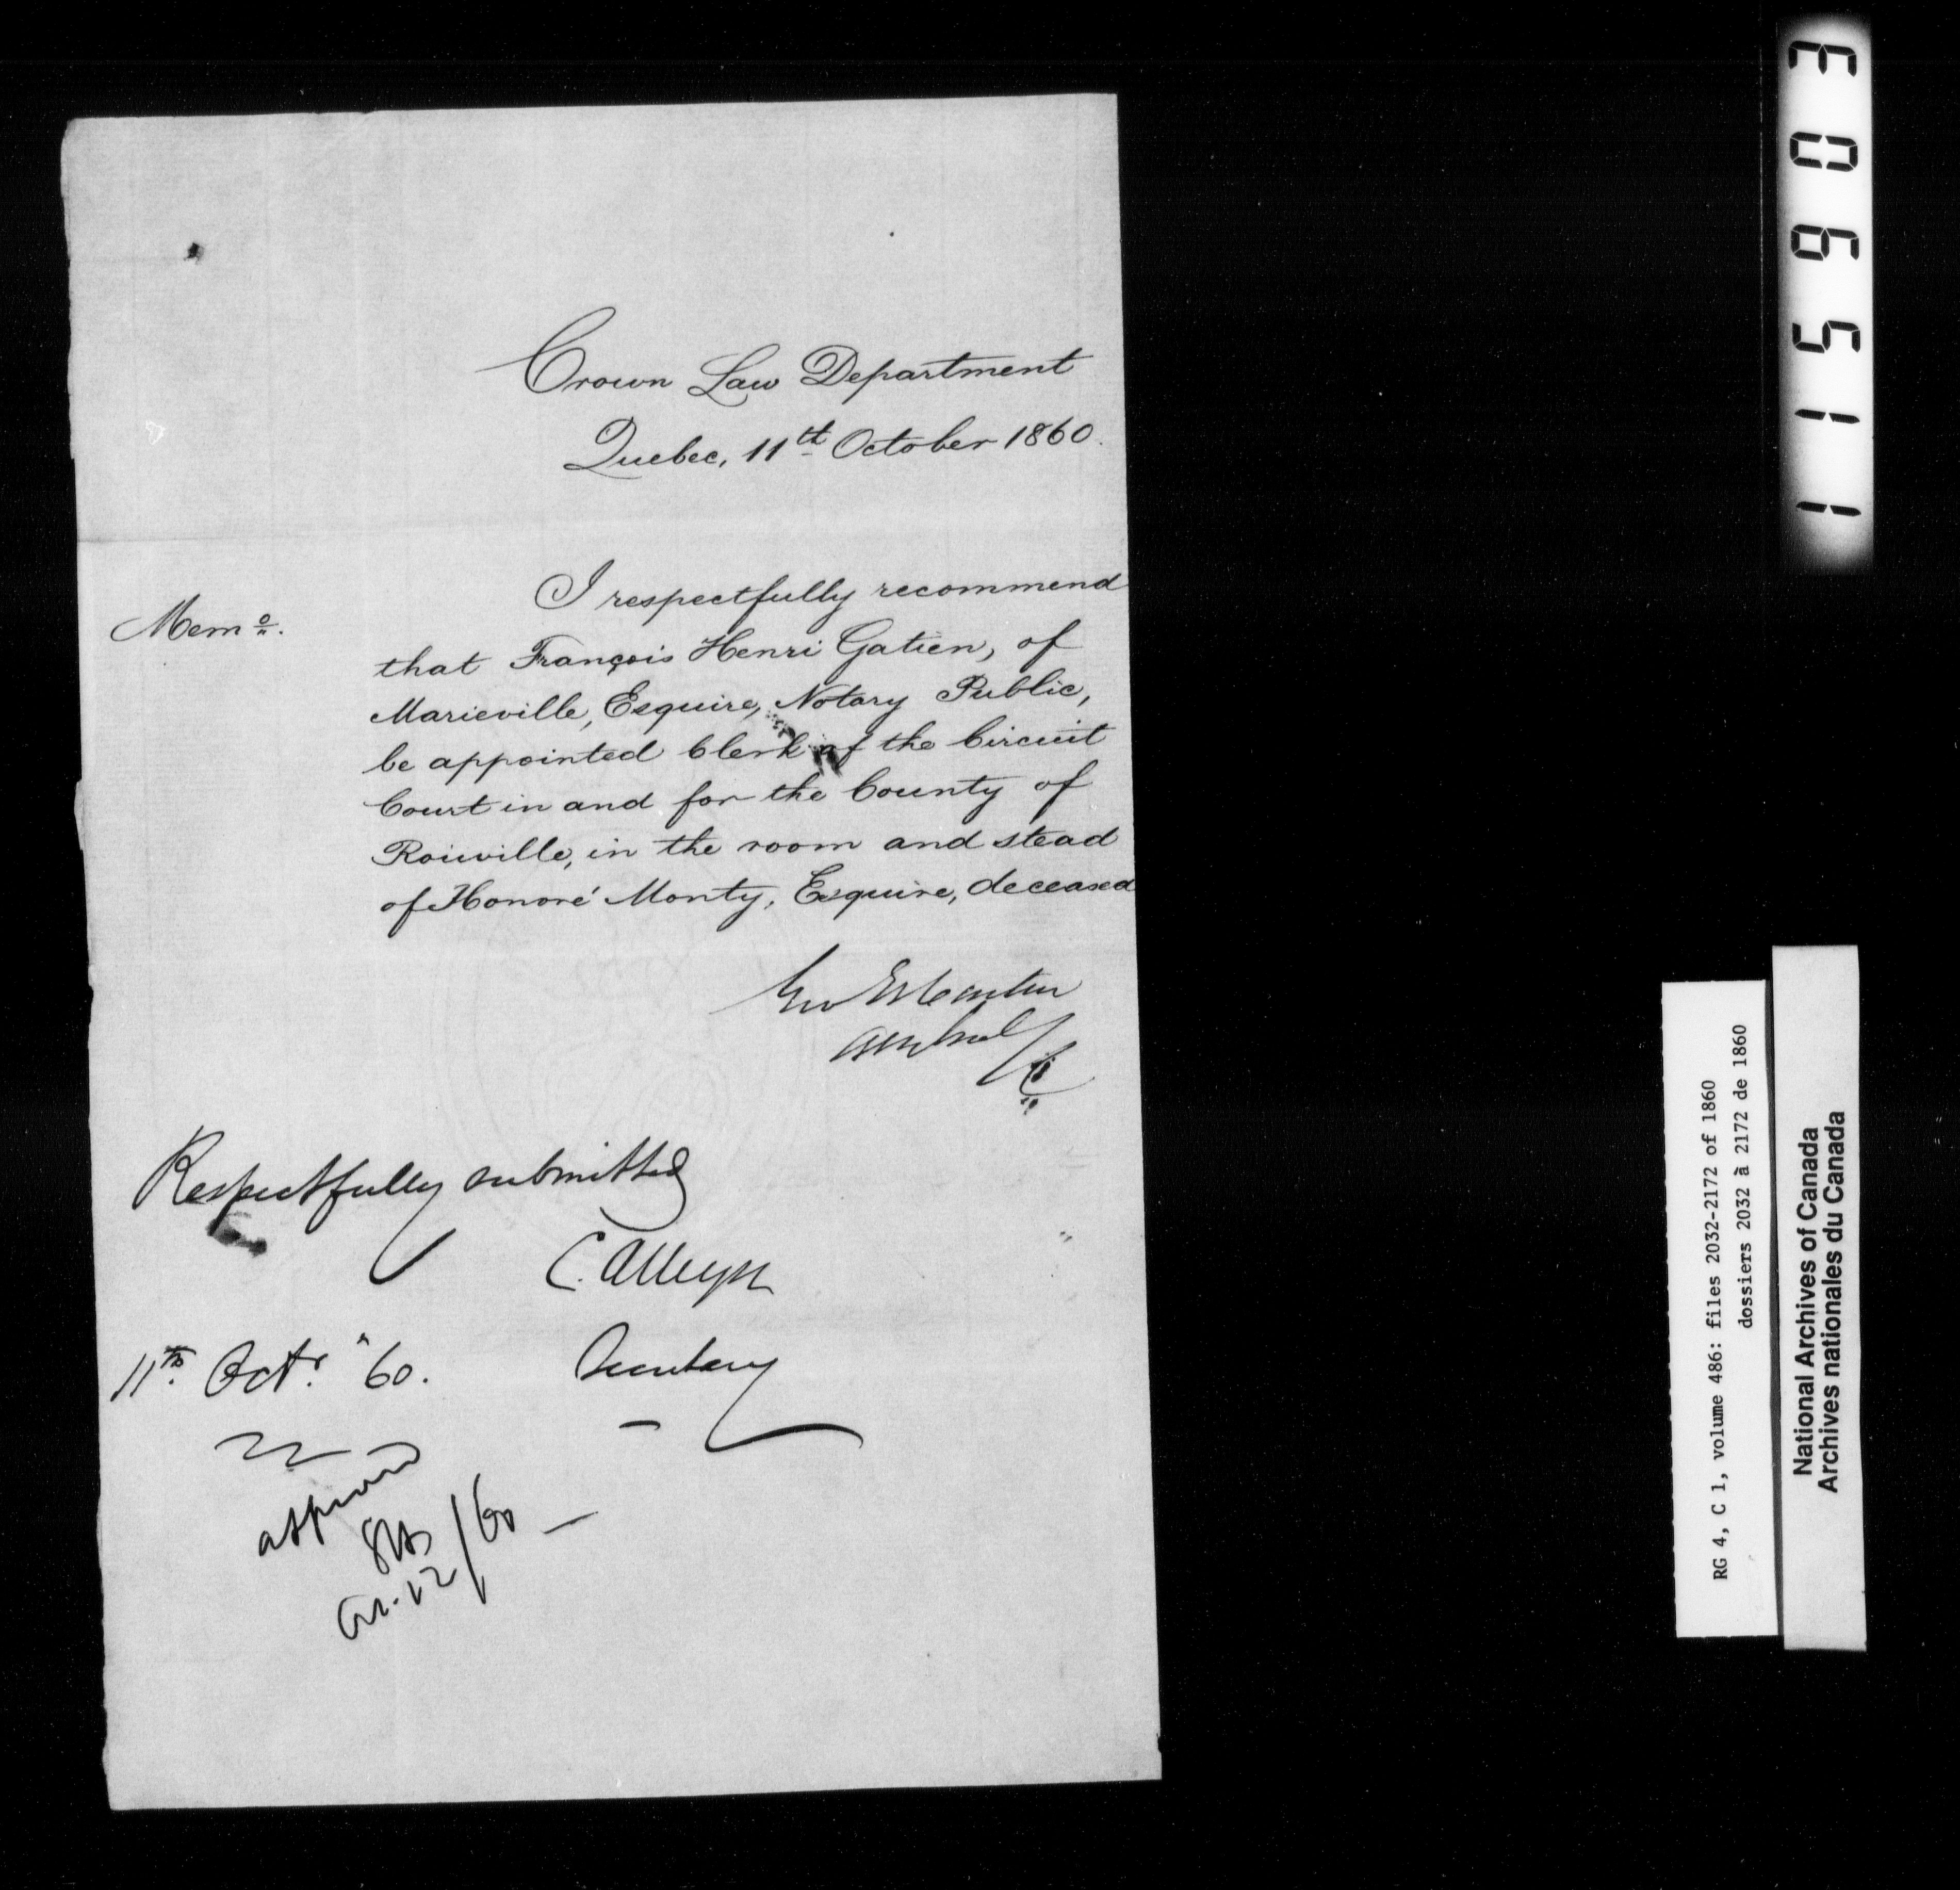 Crown Law Department
Quebec, 11th October 1860.
Memo.
I respectfully recommend
that François Henri Gatien, of
Marieville, Esquire, Notary Public,
be appointed Clerk of the Circuit
Court in and for the County of
Rouville, in the room and stead
of Honoré Monty, Esquire, deceased
Geo E Cartier
Respectfully submitted
C. Alleyn
11th Octr. "60. Secretary
approved
Oct. 12/60
115903
RG 4, C 1, volume 486: files 2032-2172 of 1860
dossiers 2032 à 2172 de 1860
National Archives of Canada
Archives nationales du Canada